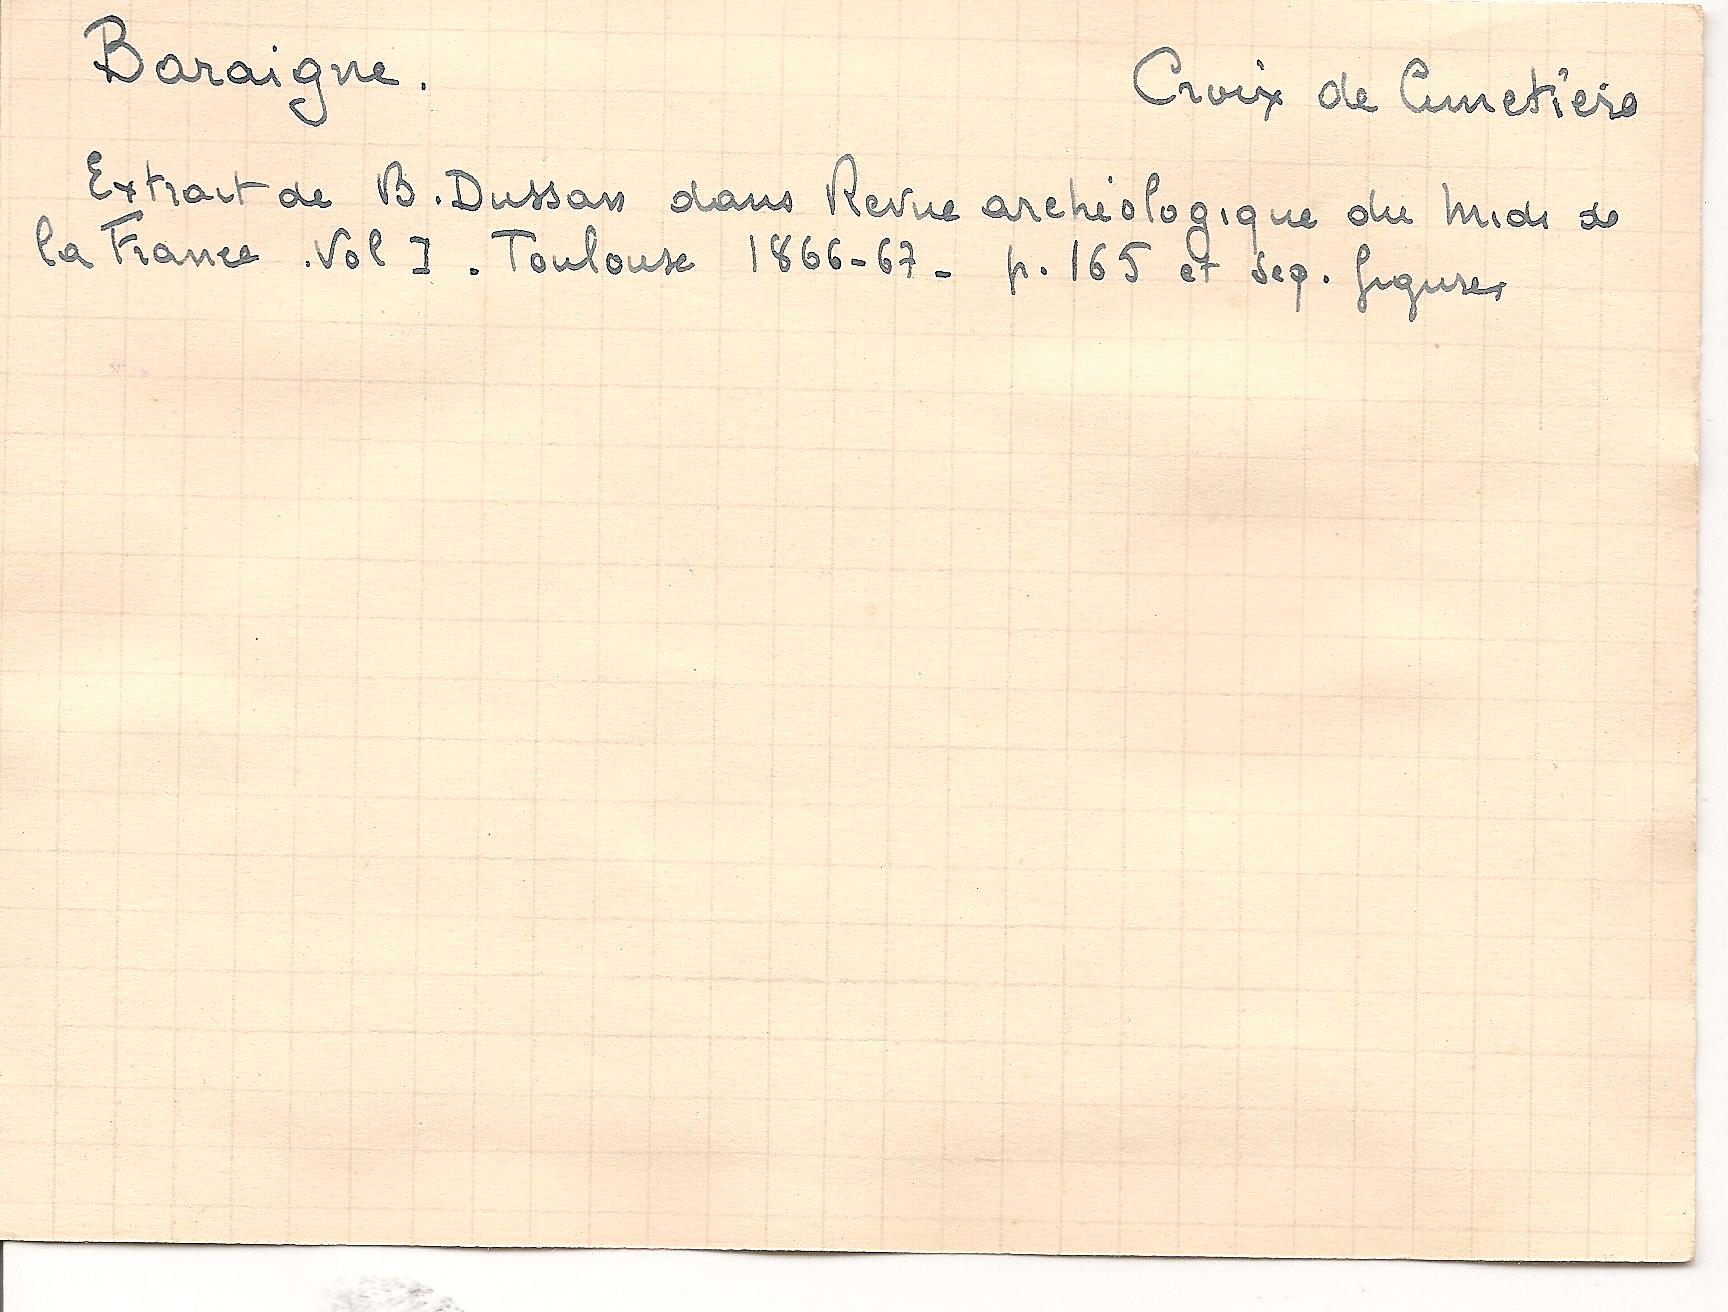 Baraigne. Croix de Cimetière
Extrait de B. Dussan dans Revue archéologique du Midi de
la France. Vol I. Toulouse 1866-67- p. 165 et seq. figures